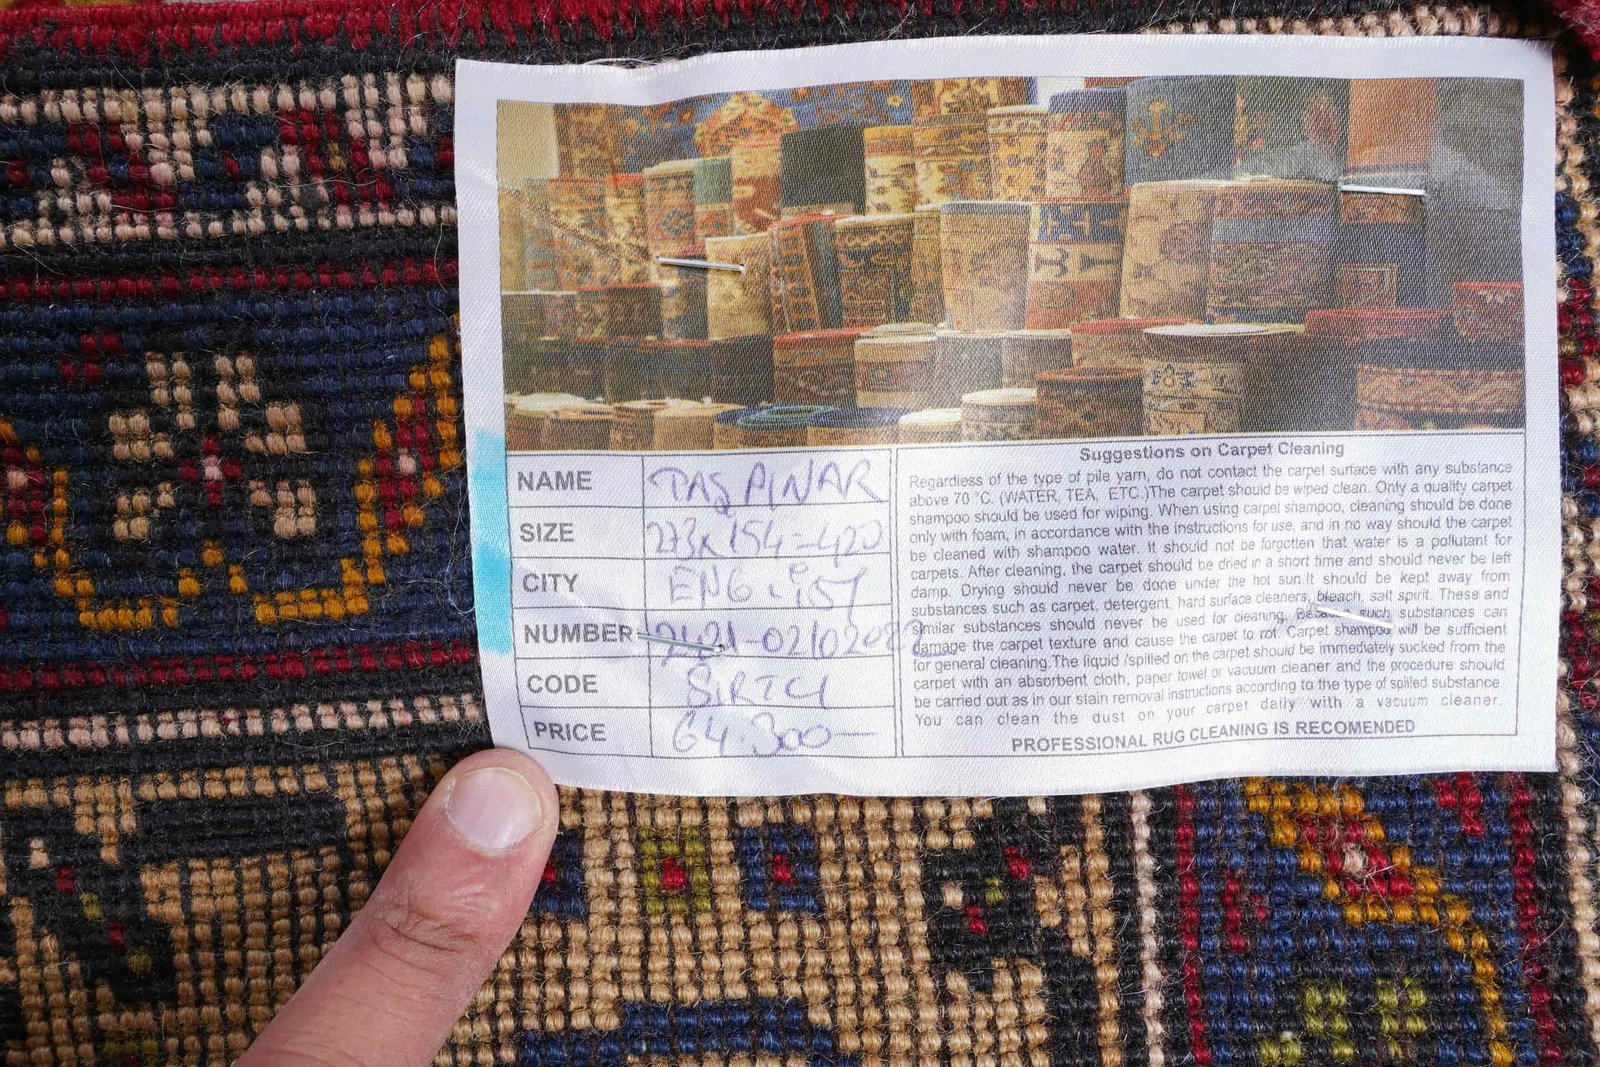 NAME TAŞPINAR
SIZE 273x154=420
CITY
NUMBER 2421-02/02
CODE
PRICE 64.300—
Suggestions on Carpet Cleaning
Regardless of the type of pile yarn, do not contact the carpet surface with any substance
above 70 °C. (WATER, TEA, ETC.)The carpet should be wiped clean. Only a quality carpet
shampoo should be used for wiping. When using carpet shampoo, cleaning should be done
only with foam, in accordance with the instructions for use, and in no way should the carpet
be cleaned with shampoo water. It should not be forgotten that water is a pollutant for
carpets. After cleaning, the carpet should be dried in a short time and should never be left
damp. Drying should never be done under the hot sun.It should be kept away from
substances such as carpet, detergent, hard surface cleaners, bleach, salt spirit. These and
similar substances should never be used for cleaning. Because such substances can
damage the carpet texture and cause the carpet to rot. Carpet shampoo will be sufficient
for general cleaning.The liquid /spilled on the carpet should be immediately sucked from the
carpet with an absorbent cloth, paper towel or vacuum cleaner and the procedure should
be carried out as in our stain removal instructions according to the type of spilled substance.
You can clean the dust on your carpet daily with a vacuum cleaner.
PROFESSIONAL RUG CLEANING IS RECOMENDED